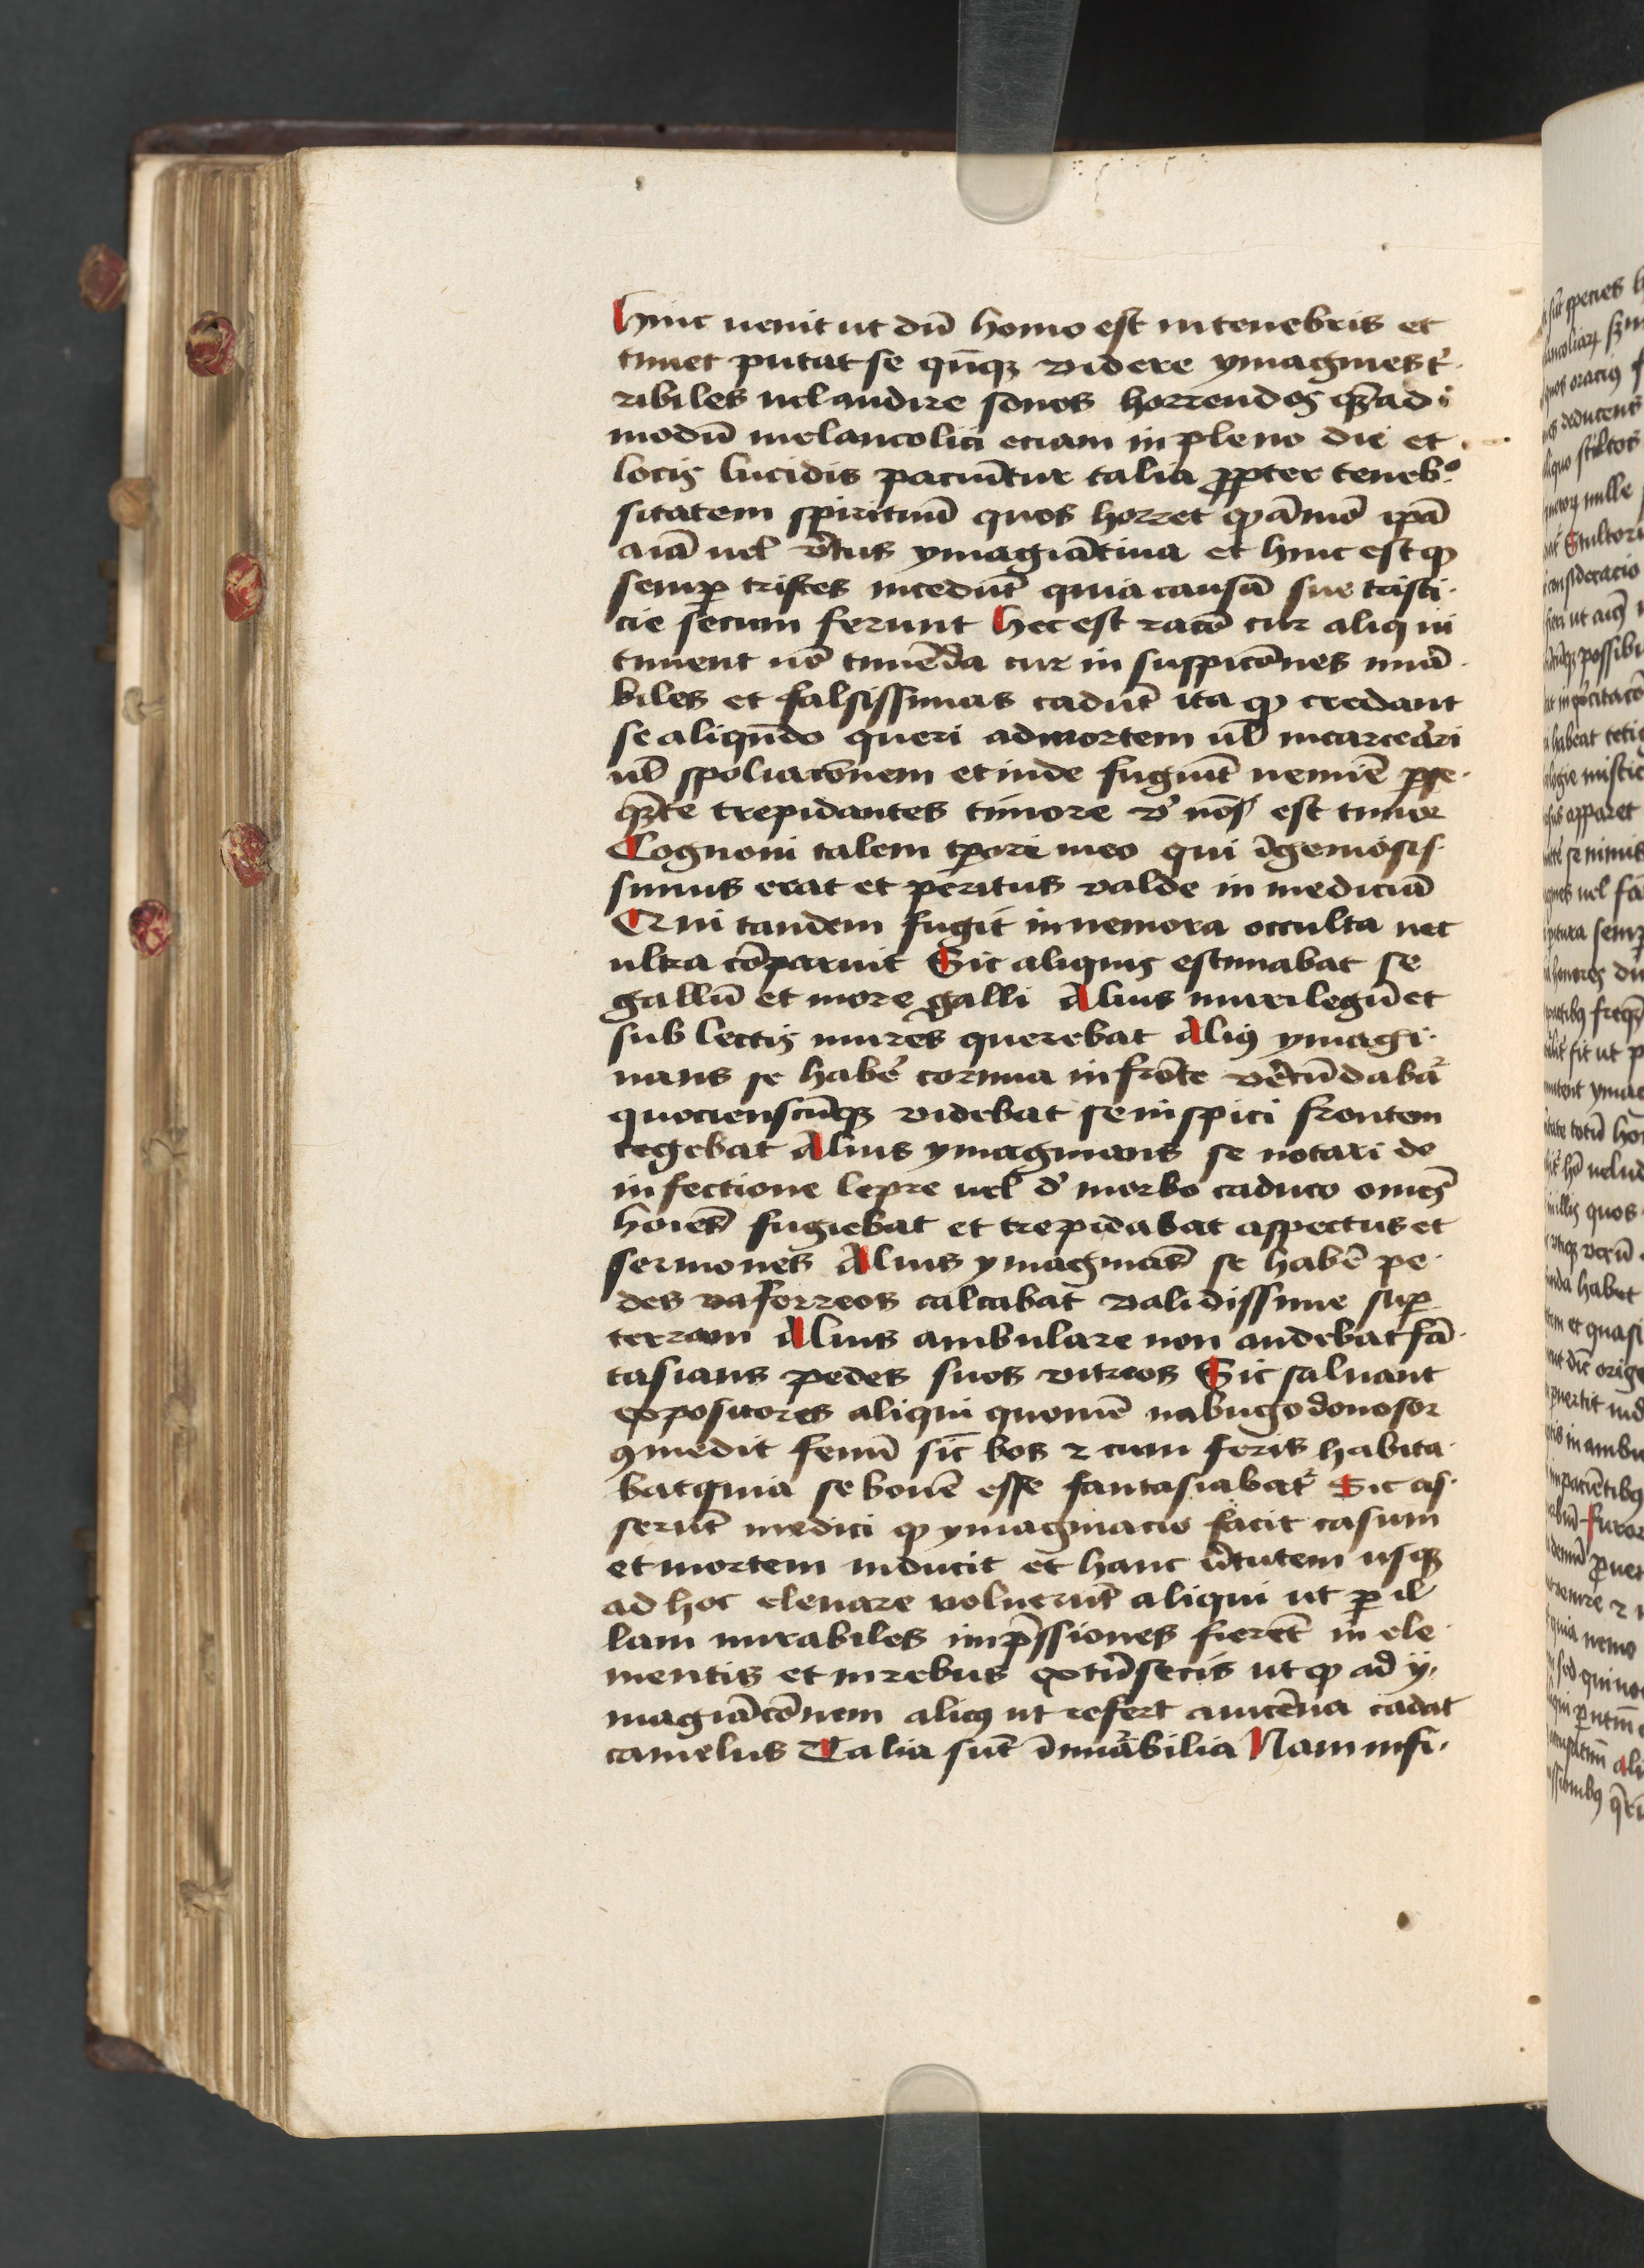 Hinc uenit ut dū homo est in tenebris et
timet putat se qn̄qꝫ videre ymagines t̉
ribiles uel audire sonos horrendos qꝫad
modū melancolici eciam in pleno die et
locis lucidis paciūtur talia ꝓpter teneb͛o
sitatem spirituū quos horret ꝙ āīmo ip̄ā
aīa uel v̉tus ymagiātiua et hinc est ꝙ
semꝑ tristes incedūt quia causā sue tristi
cie secum ferunt Hec est racō cur aliqui
timent nō timēda cur in suspicōnes mirā
biles et falsissimas cadūt ita ꝙ credant
se aliqn̄do queri ad mortem ul̄ incarcerari
ul̄ spoliacōnem et inde fugiūt neminē ꝑse
q̄nte trepidantes timore v̉ nō est timor
Cognoui talem tꝑore meo qui īgeniosis
simus erat et peritus valde in mediciā
Qui tandem fugit in nemora occulta nec
ultra cōparuit Sic aliquis estimabat se
gallū et more galli Alius murilegū et
sub lectis mures querebat Aliꝰ ymagi
nans se habē cornua in frōte v̉ecūdabat̉
quocienscūqꝫ videbat se inspici frontem
tegebat Alius ymaginans se notari de
infectione lepre uel d̉ morbo caduco om̄es
hoīes fugiebat et trepidabat aspectus et
sermones Alius ymaginās se habē pe
des va forreos calcabat validissime suꝑ
terram Alius ambulare non audebat fā
tasians pedes suos vitreos Sic saluant
expositores aliqui quomō nabugodonosor
ꝯmedit fenū sic̄ bos ⁊ cum feris habita
bat quia se bouē esse fantasiabat̉ Sic as
serūt medici ꝙ ymaginacio facit casum
et mortem inducit et hanc v̉tutem usqꝫ
ad hoc eleuare voluerūt aliqui ut ꝑ il
lam mirabiles imp̄ssiones fierēt in ele
mentis et in rebus ext̉nsecis ut ꝙ ad y
magiācōnem alicꝰ ut refert auicēna cadat
camelus Talia sūt īnumābilia Nam infi